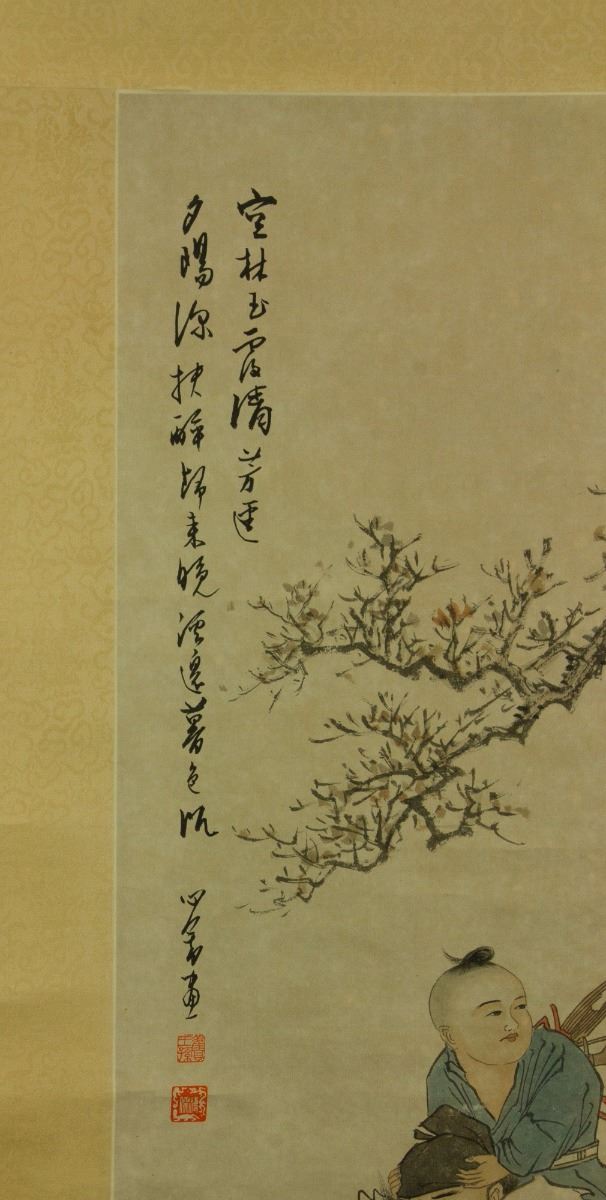 空林玉露清芳逕
夕陽深扶醉歸來晚溪邊暮色沉
心畬畫